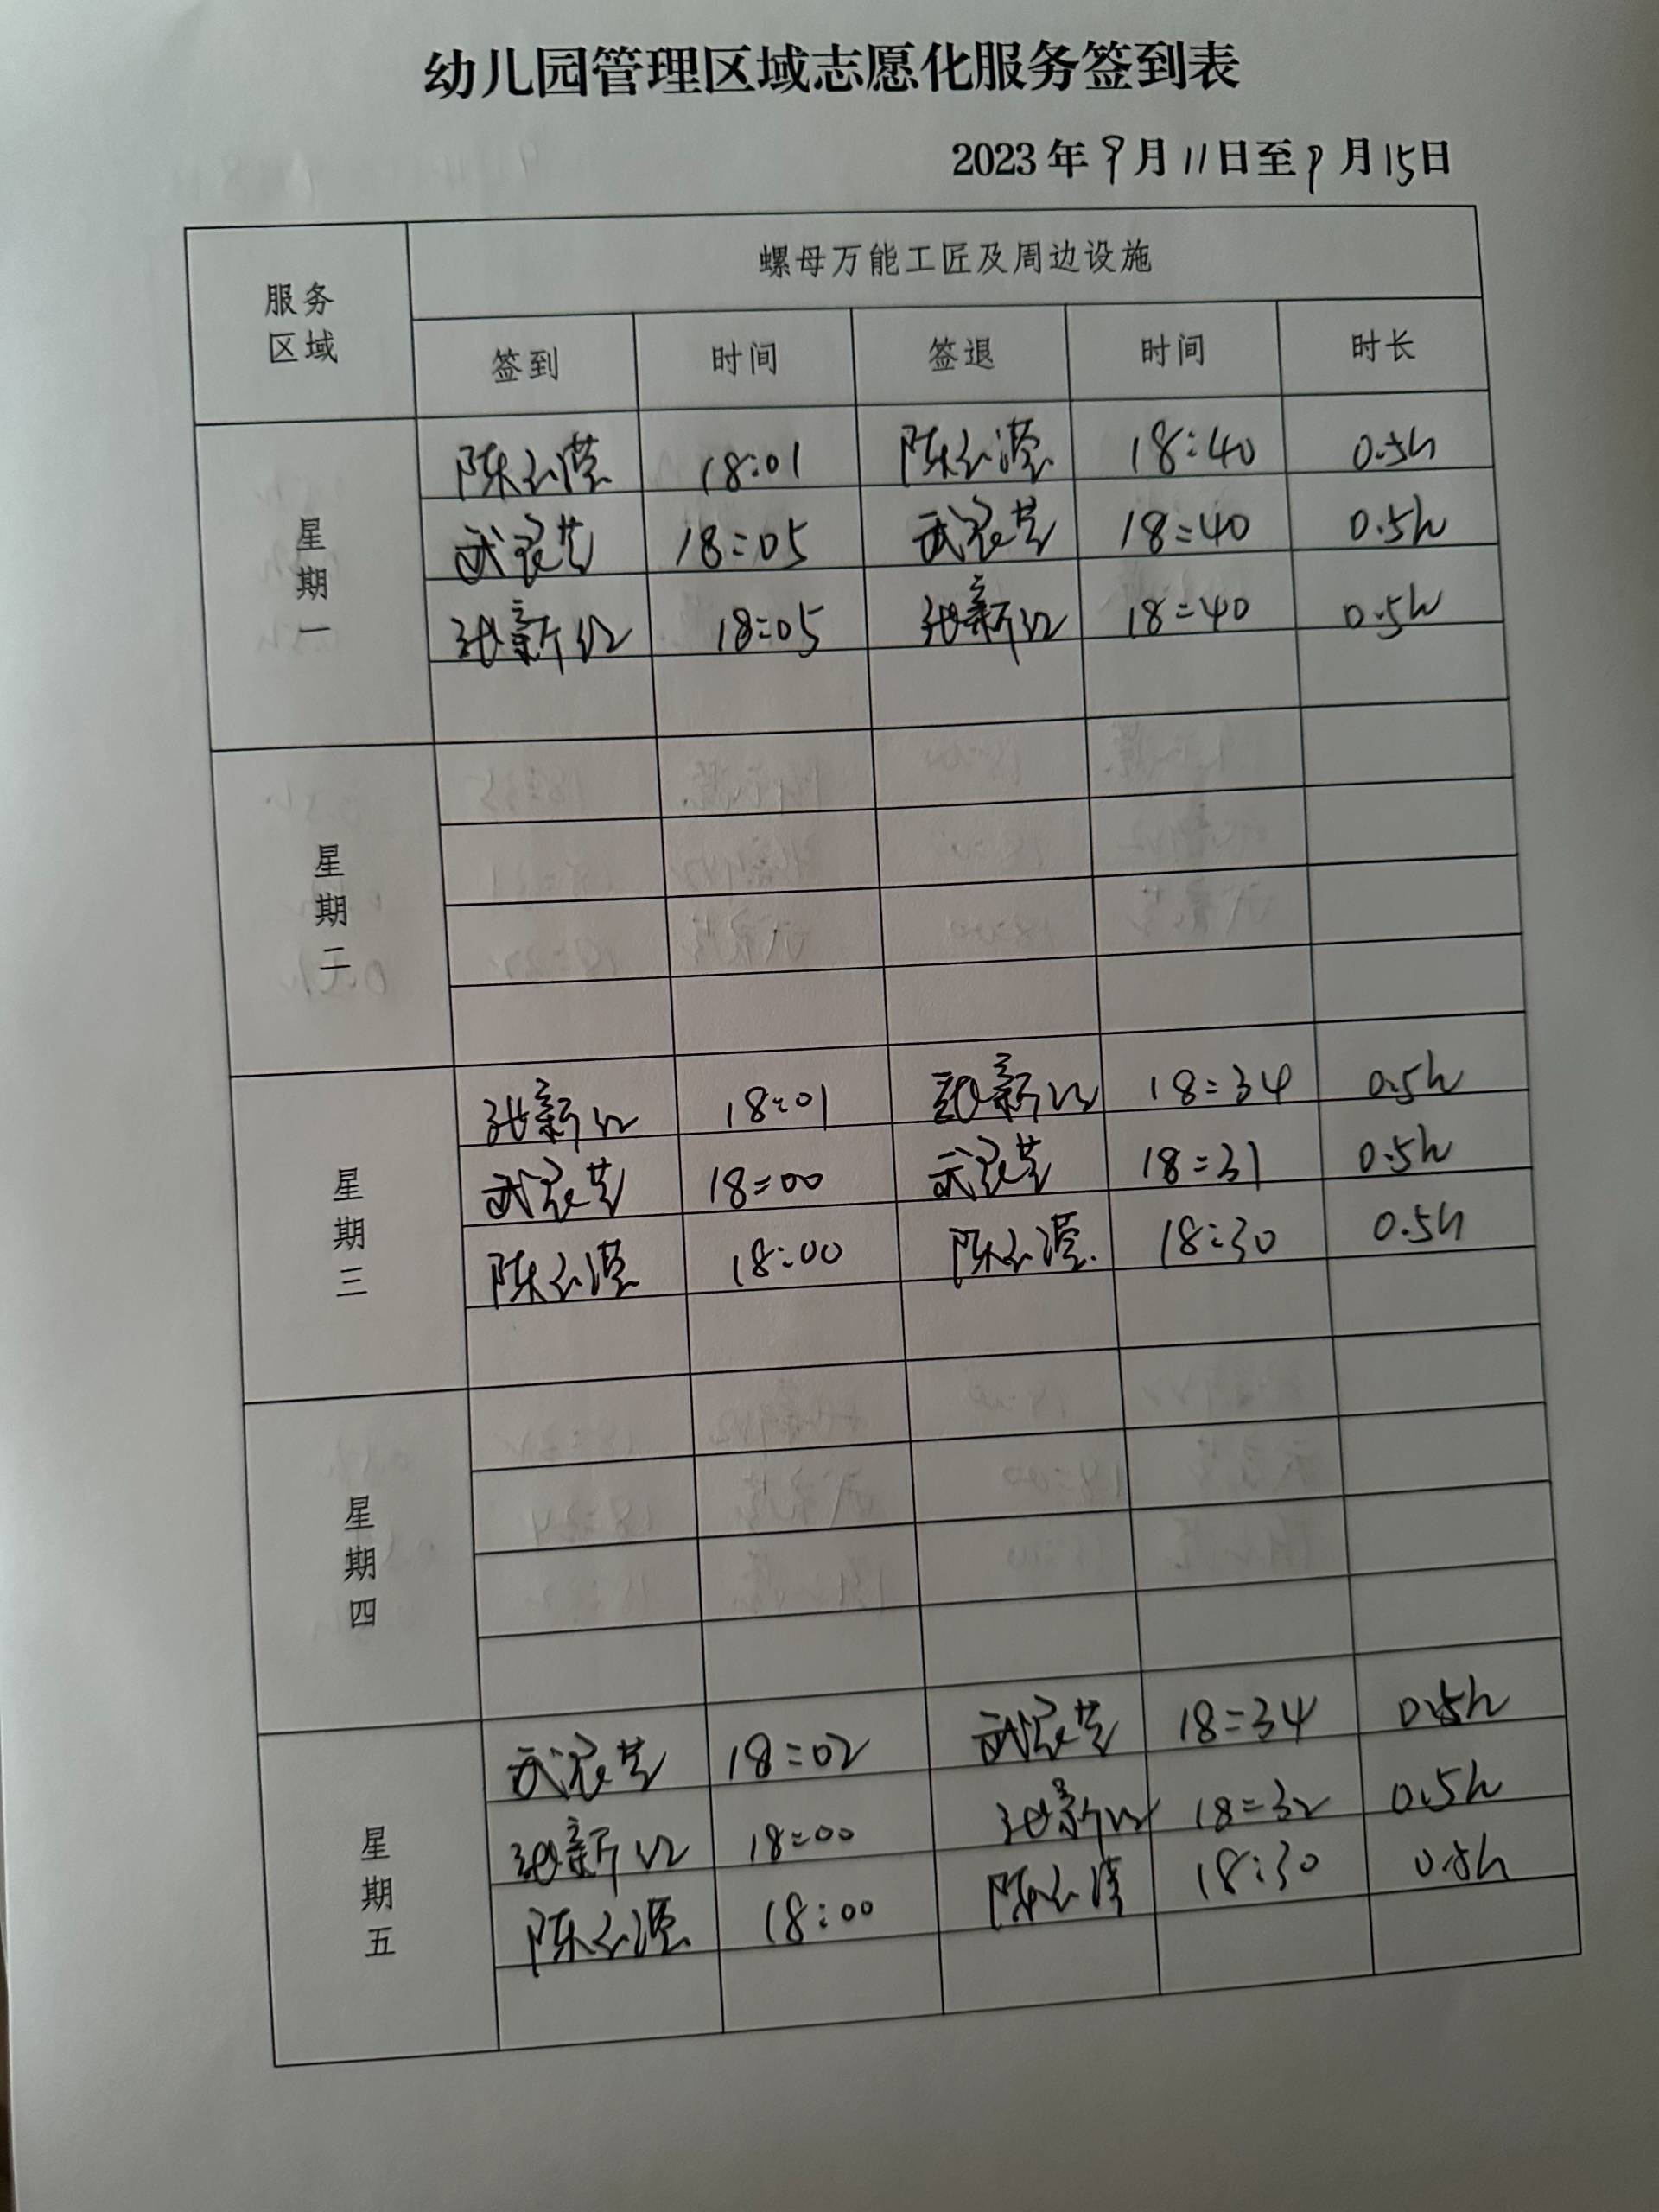 幼儿园管理区域志愿化服务签到表
2023年9月11日至9月15日
服务区域 螺母万能工匠及周边设施
签到 时间 签退 时间 时长
星期一
陈 18:01 陈 18:40 0.5h
武 18:05 武 18:40 0.5h
张新 18:05 张新 18:40 0.5h
星期二
星期三
张新 18:01 张新 18:34 0.5h
武 18:00 武 18:31 0.5h
陈 18:00 陈 18:30 0.5h
星期四
星期五
武 18:02 武 18:34 0.5h
张新 18:00 张新 18:32 0.5h
陈 18:00 陈 18:30 0.5h